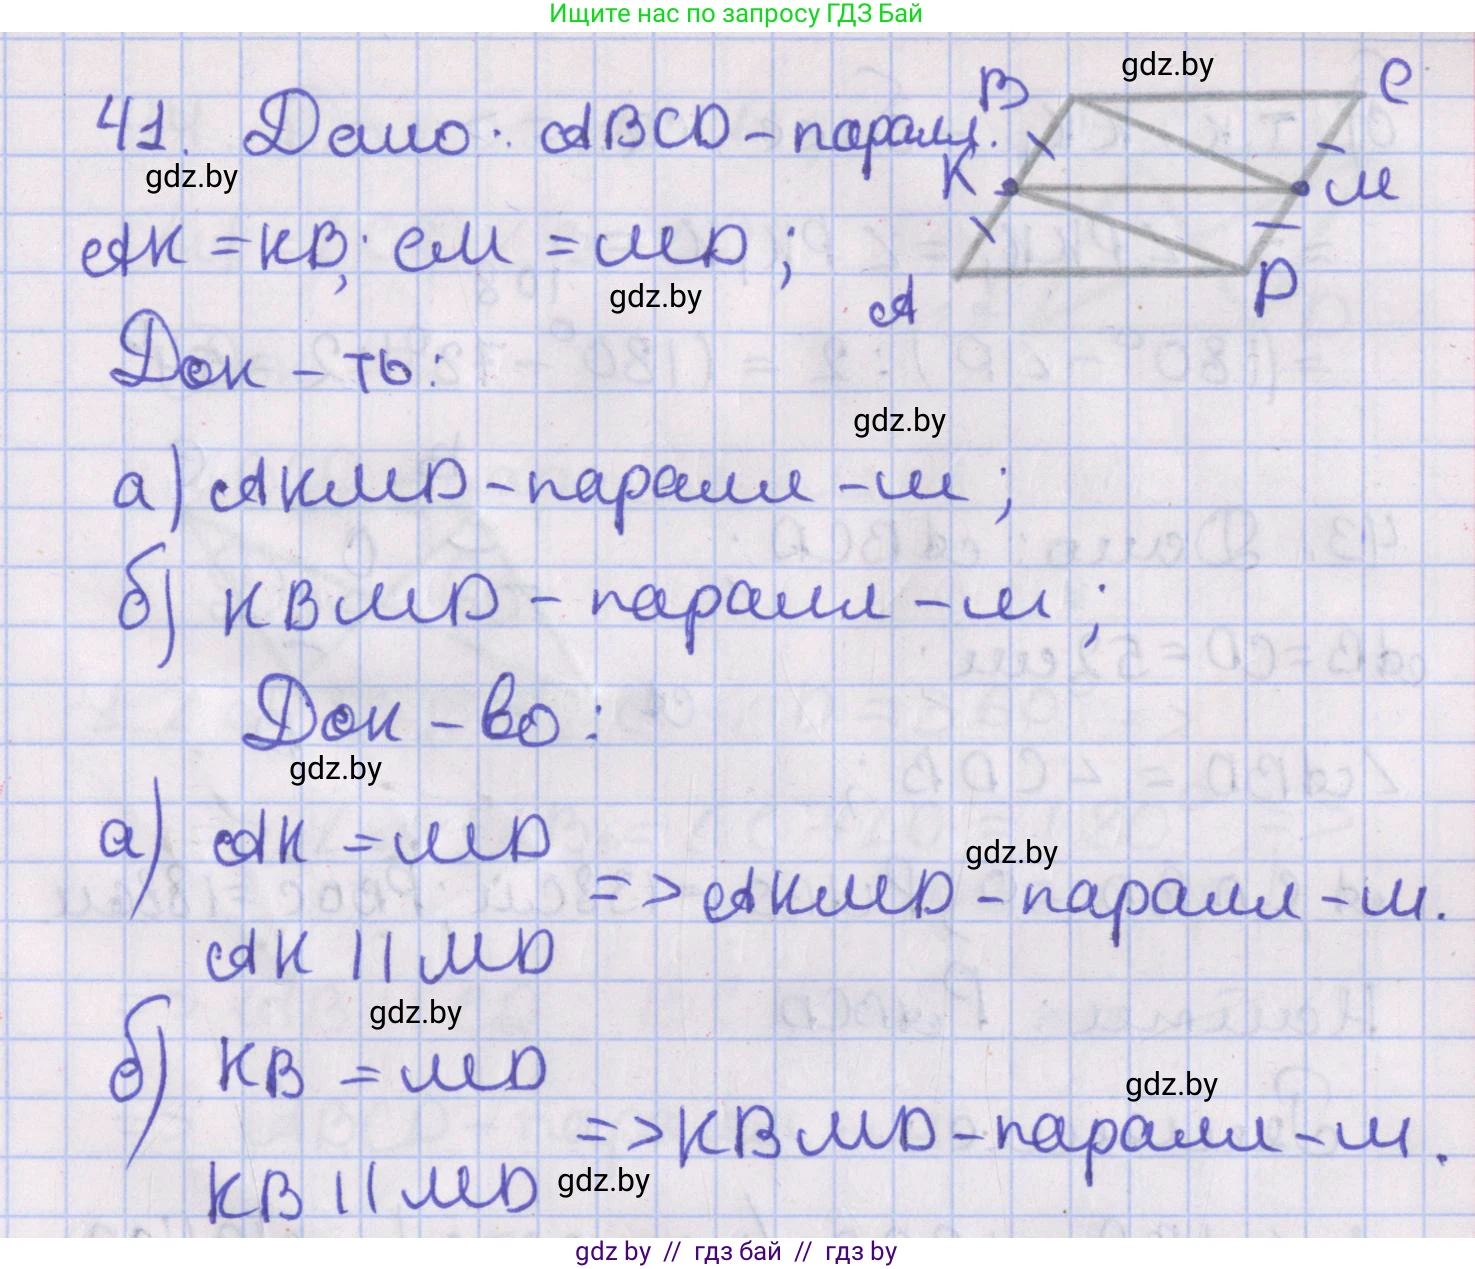 Ищите нас по запросу ГДЗ Бай
gdz.by
B
C
41. Дано: ABCD - паралл.
gdz.by
K
M
AK = KB; CM = MD;
gdz.by
A
D
Док - ть:
gdz.by
а) AKMD - паралл - м;
б) KBMD - паралл - м;
Док - во:
gdz.by
а) AK = MD
gdz.by
=> AKMD - паралл - м.
AK || MD
gdz.by
б) KB = MD
gdz.by
=> KBMD - паралл - м.
KB || MD
gdz.by
gdz by // гдз бай // гдз by